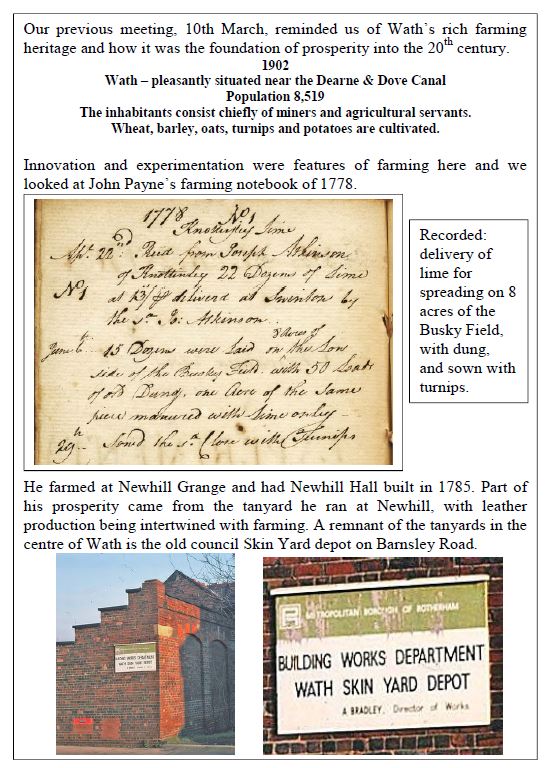 Our previous meeting, 10th March, reminded us of Wath's rich farming
heritage and how it was the foundation of prosperity into the 20th century.
1902
Wath – pleasantly situated near the Dearne & Dove Canal
Population 8,519
The inhabitants consist chiefly of miners and agricultural servants.
Wheat, barley, oats, turnips and potatoes are cultivated.
Innovation and experimentation were features of farming here and we
looked at John Payne's farming notebook of 1778.
1778 No 1
Knottingley Lime
Apl. 22nd Recd from Joseph Atkinson
of Knottingley 22 Dozens of Lime
No 1 at 13/ deliverd at Swinton by
the sd Jo: Atkinson
8 Acres of
June 6th 15 Dozens were laid on the
side of the Busky Field with 50 Loads
of old Dung, one Acre of the same
piece manured with Lime onley
29th Sowed the sd Close with Turnips
Recorded:
delivery of
lime for
spreading on 8
acres of the
Busky Field,
with dung,
and sown with
turnips.
He farmed at Newhill Grange and had Newhill Hall built in 1785. Part of
his prosperity came from the tanyard he ran at Newhill, with leather
production being intertwined with farming. A remnant of the tanyards in the
centre of Wath is the old council Skin Yard depot on Barnsley Road.
BUILDING WORKS DEPARTMENT
WATH SKIN YARD DEPOT
METROPOLITAN BOROUGH OF ROTHERHAM
BUILDING WORKS DEPARTMENT
WATH SKIN YARD DEPOT
A BRADLEY, Director of Works